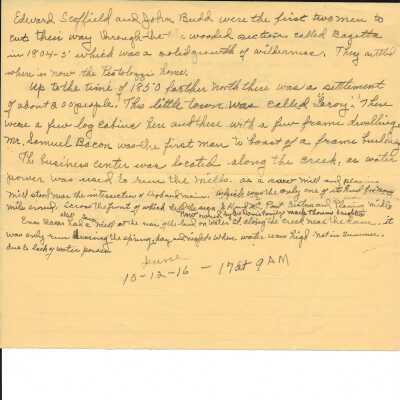 Edward Scoffield and John Budd were the first two men to
cut their way through the wooded section called Bagetta
in 1904-5 which was a solid growth of wilderness. They settled
where is now the home.
Up to the time of 1850 farther North there was a settlement
of about 300 people. This little town was called "Leroy". There
were a few log cabins here and there with a few frame dwellings
Mr. Samuel Bacon was the first man to boast of a frame building
The business center was located along the creek, as water
power was used to run the mills. as a saw mill and planing
mill stood near the intersection of and main. which was the only one of its kind for many
miles around. Across the front of which
Planing Mill
had a mill at the rear of the land on Water St along the creek near the dam. it
was only run during the spring, day and nights when water was high not in summer.
due to lack of water power
June
10-12-16 - 17 at 9 AM